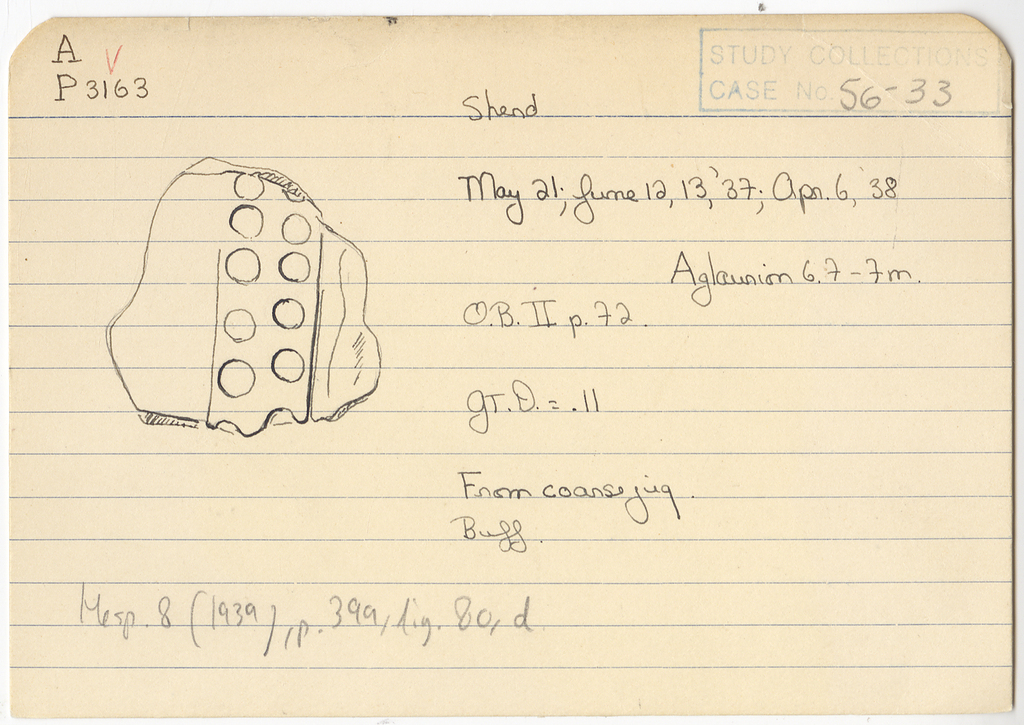 A
P 3163
STUDY COLLECTIONS
CASE No. 56-33
Sherd
May 21; June 12, 13, '37; Apr. 6, '38
Aglaurion 6.7 - 7 m.
O.B. II p. 72.
gr. D. = .11
From coarse jug.
Buff.
Hesp. 8 (1939), p. 399, fig. 80, d